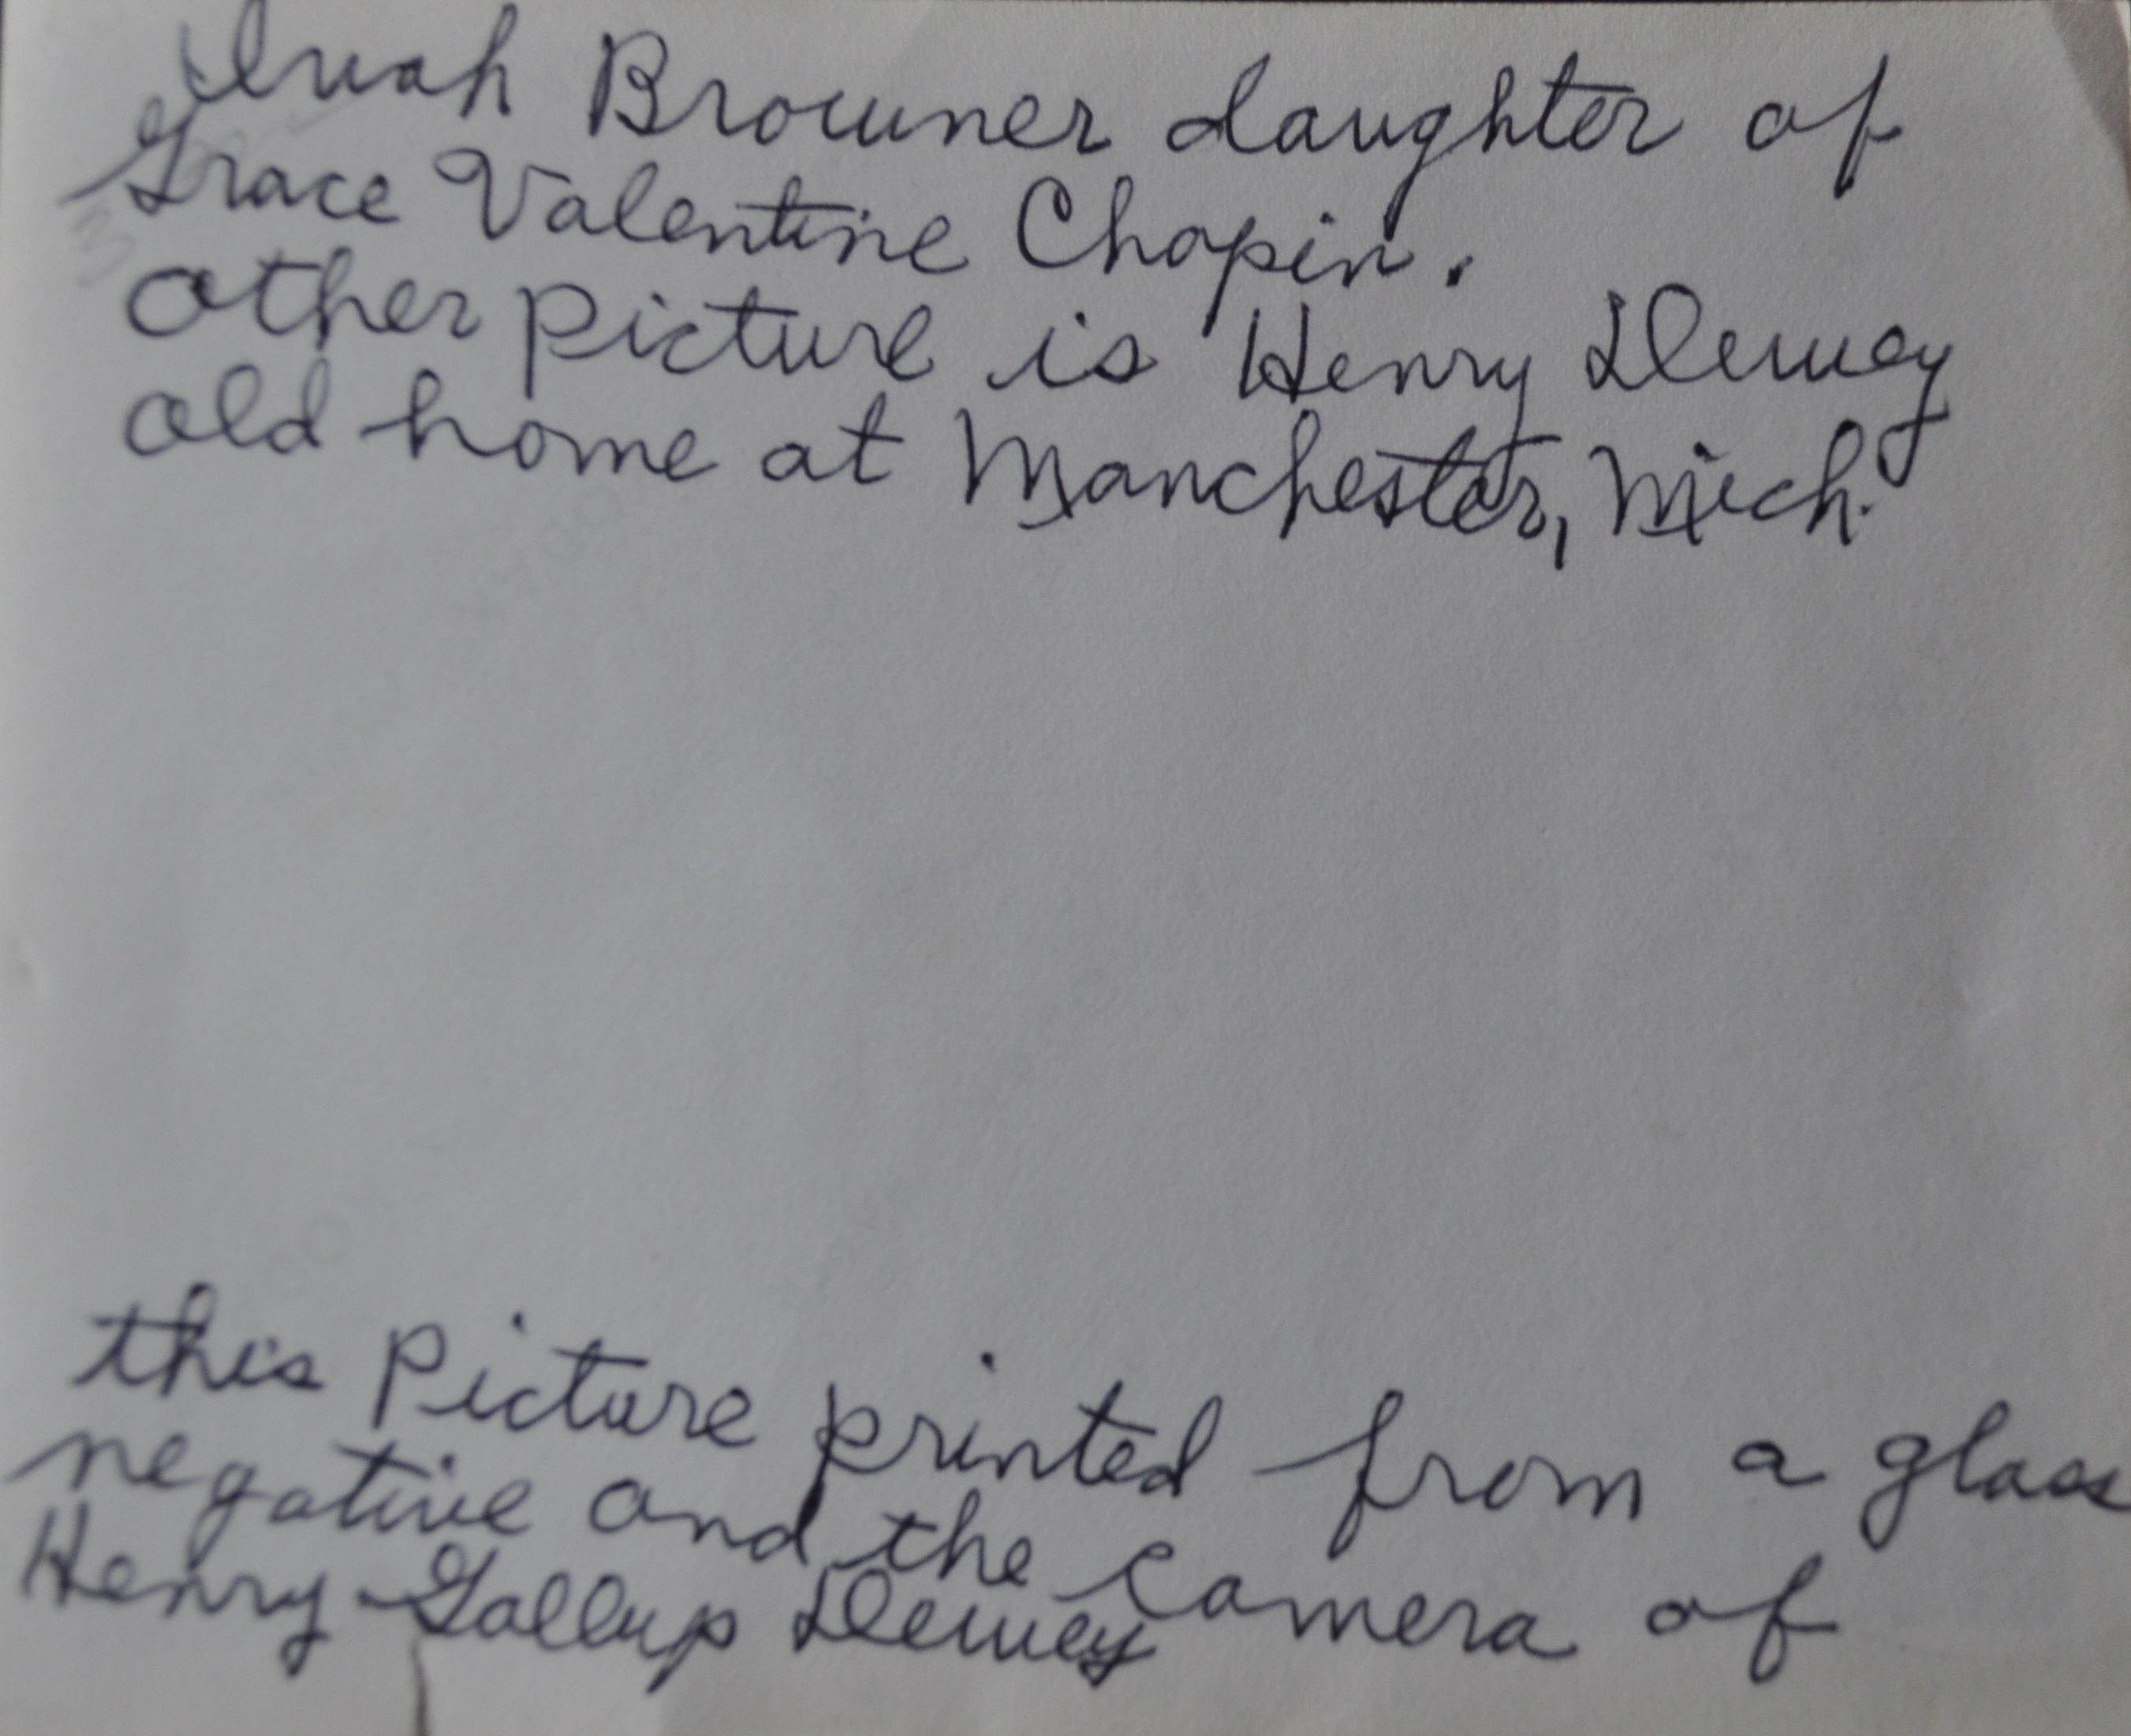 Browner daughter of
Grace Valentine Chapin.
other picture is Henry Dewey
old home at Manchester, Mich.
this Picture printed from a glass
negative and the camera of
Henry Gallup Dewey